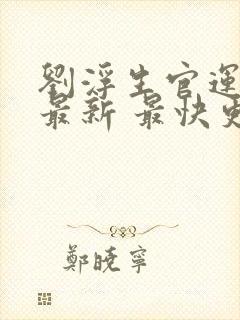 劉浮生官運
最新 最快更
鄭曉寧